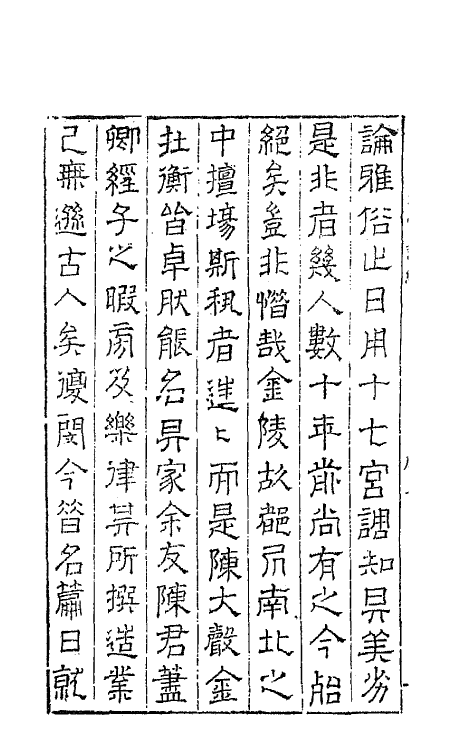 論雅俗止日用十七宮調知其美劣
是非者幾人數十年前尚有之今殆
絕矣豈非憯哉金陵故都凥南北之
中擅塲斯秇者往往而是陳大聲金
在衡皆卓肰能名其家余友陳君藎
卿經子之暇旁及樂律其所撰造業
已無遜古人矣閔今昔名日就